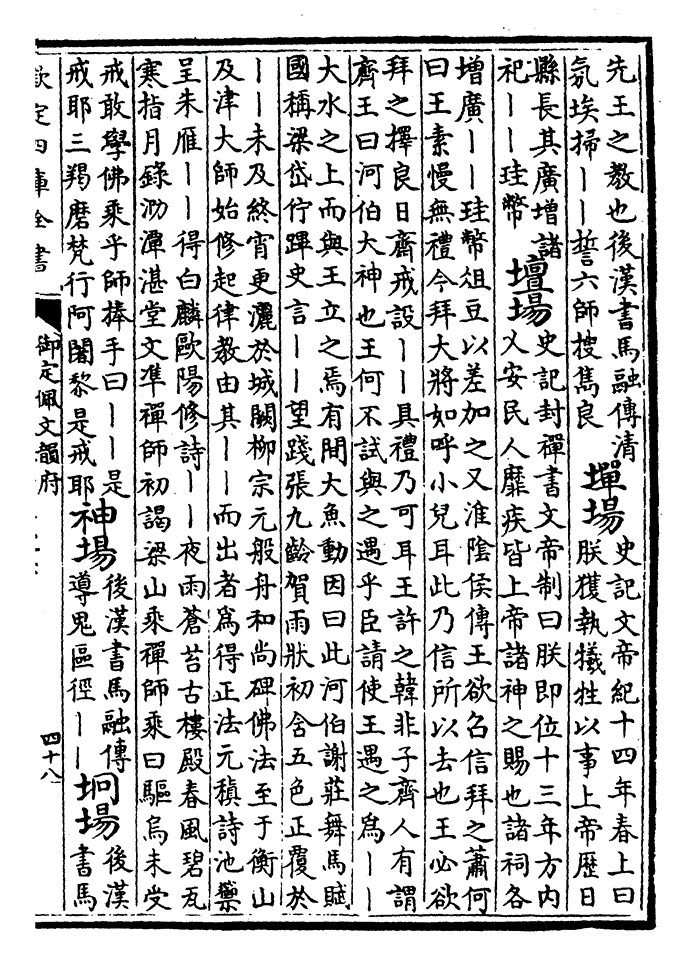 先王之教也後漢書馬融傳清
氛埃掃丨丨誓六師搜雋良
墠場
史記文帝紀十四年春上曰
朕獲執犧牲以事上帝歷日
縣長其廣增諸
祀丨丨珪幣
壇場
史記封禪書文帝制曰朕即位十三年方內
乂安民人靡疾皆上帝諸神之賜也諸祠各
增廣丨丨珪幣俎豆以差加之又淮陰侯傳王欲召信拜之蕭何
曰王素慢無禮今拜大將如呼小兒耳此乃信所以去也王必欲
拜之擇良日齋戒設丨丨具禮乃可耳王許之韓非子齊人有謂
齊王曰河伯大神也王何不試與之遇乎臣請使王遇之為丨丨
大水之上而與王立之焉有間大魚動因曰此河伯謝莊舞馬賦
國稱梁岱佇蹕史言丨丨望踐張九齡賀雨狀初含五色正覆於
丨丨未及終宵更灑於城闕柳宗元般舟和尚碑佛法至于衡山
及津大師始修起律教由其丨丨而出者為得正法元稹詩池籞
呈朱雁丨丨得白麟歐陽修詩丨丨夜雨蒼苔古樓殿春風碧瓦
寒指月錄泐潭湛堂文準禪師初謁梁山乘禪師乘曰驅烏未受
戒敢學佛乘乎師捧手曰丨丨是
戒耶三羯磨梵行阿闍黎是戒耶
神場
後漢書馬融傳
導鬼區徑丨丨
坰場
後漢
書馬
欽定四庫全書
御定佩文韻府
四十八